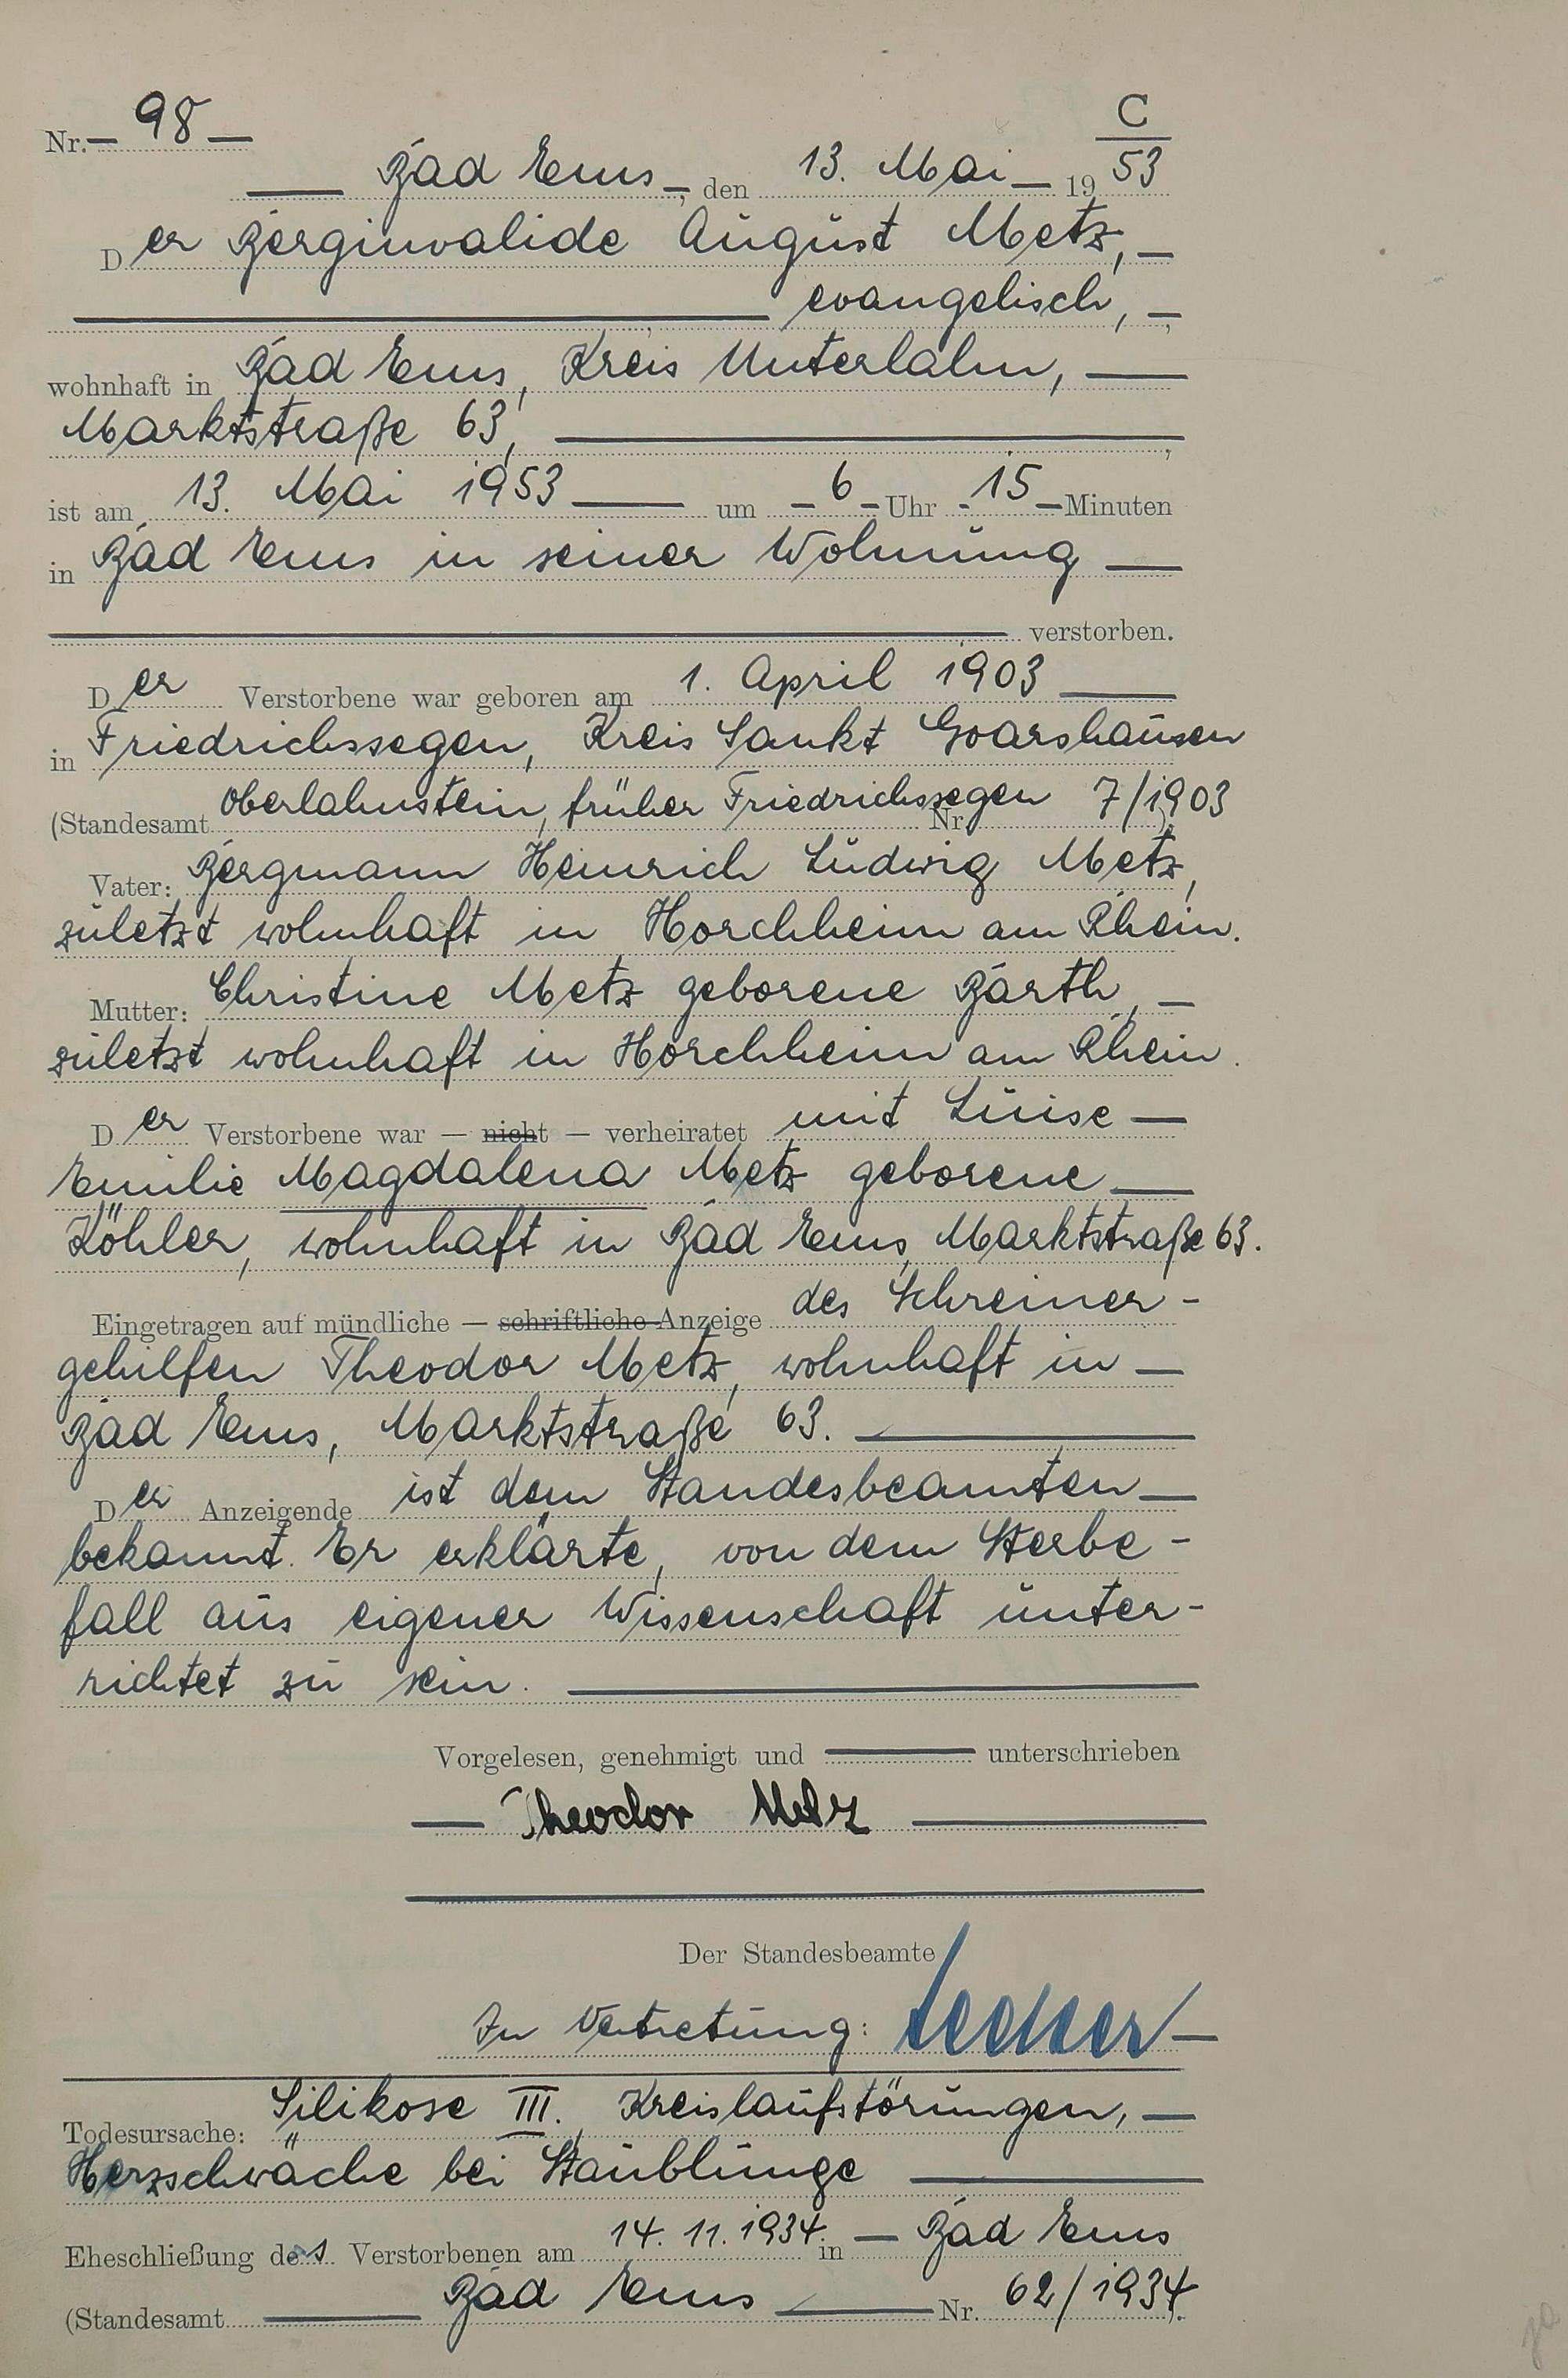 C
Nr. — 98 —
— Bad Ems —, den 13. Mai — 1953
Der Berginvalide August Metz, —
— evangelisch, —
wohnhaft in Bad Ems, Kreis Unterlahn, —
Marktstraße 63, —
ist am 13. Mai 1953 — um — 6 — Uhr - 15 — Minuten
in Bad Ems in seiner Wohnung —
— verstorben.
Der Verstorbene war geboren am 1. April 1903 —
in Friedrichssegen, Kreis Sankt Goarshausen
(Standesamt Oberlahnstein, früher Friedrichssegen Nr. 7/1903)
Vater: Bergmann Heinrich Ludwig Metz,
zuletzt wohnhaft in Horchheim am Rhein.
Mutter: Christine Metz geborene Barth, —
zuletzt wohnhaft in Horchheim am Rhein.
Der Verstorbene war — nicht — verheiratet mit Luise —
Emilie Magdalena Metz geborene —
Köhler, wohnhaft in Bad Ems, Marktstraße 63.
Eingetragen auf mündliche — schriftliche Anzeige des Schreiner-
gehilfen Theodor Metz, wohnhaft in —
Bad Ems, Marktstraße 63. —
Der Anzeigende ist dem Standesbeamten —
bekannt. Er erklärte, von dem Sterbe-
fall aus eigener Wissenschaft unter-
richtet zu sein. —
Vorgelesen, genehmigt und — unterschrieben
— Theodor Metz —
Der Standesbeamte
In Vertretung:
Todesursache: Silikose III. Kreislaufstörungen, —
Herzschwäche bei Staublunge —
Eheschließung des Verstorbenen am 14. 11. 1934 in — Bad Ems
(Standesamt — Bad Ems — Nr. 62/1934).